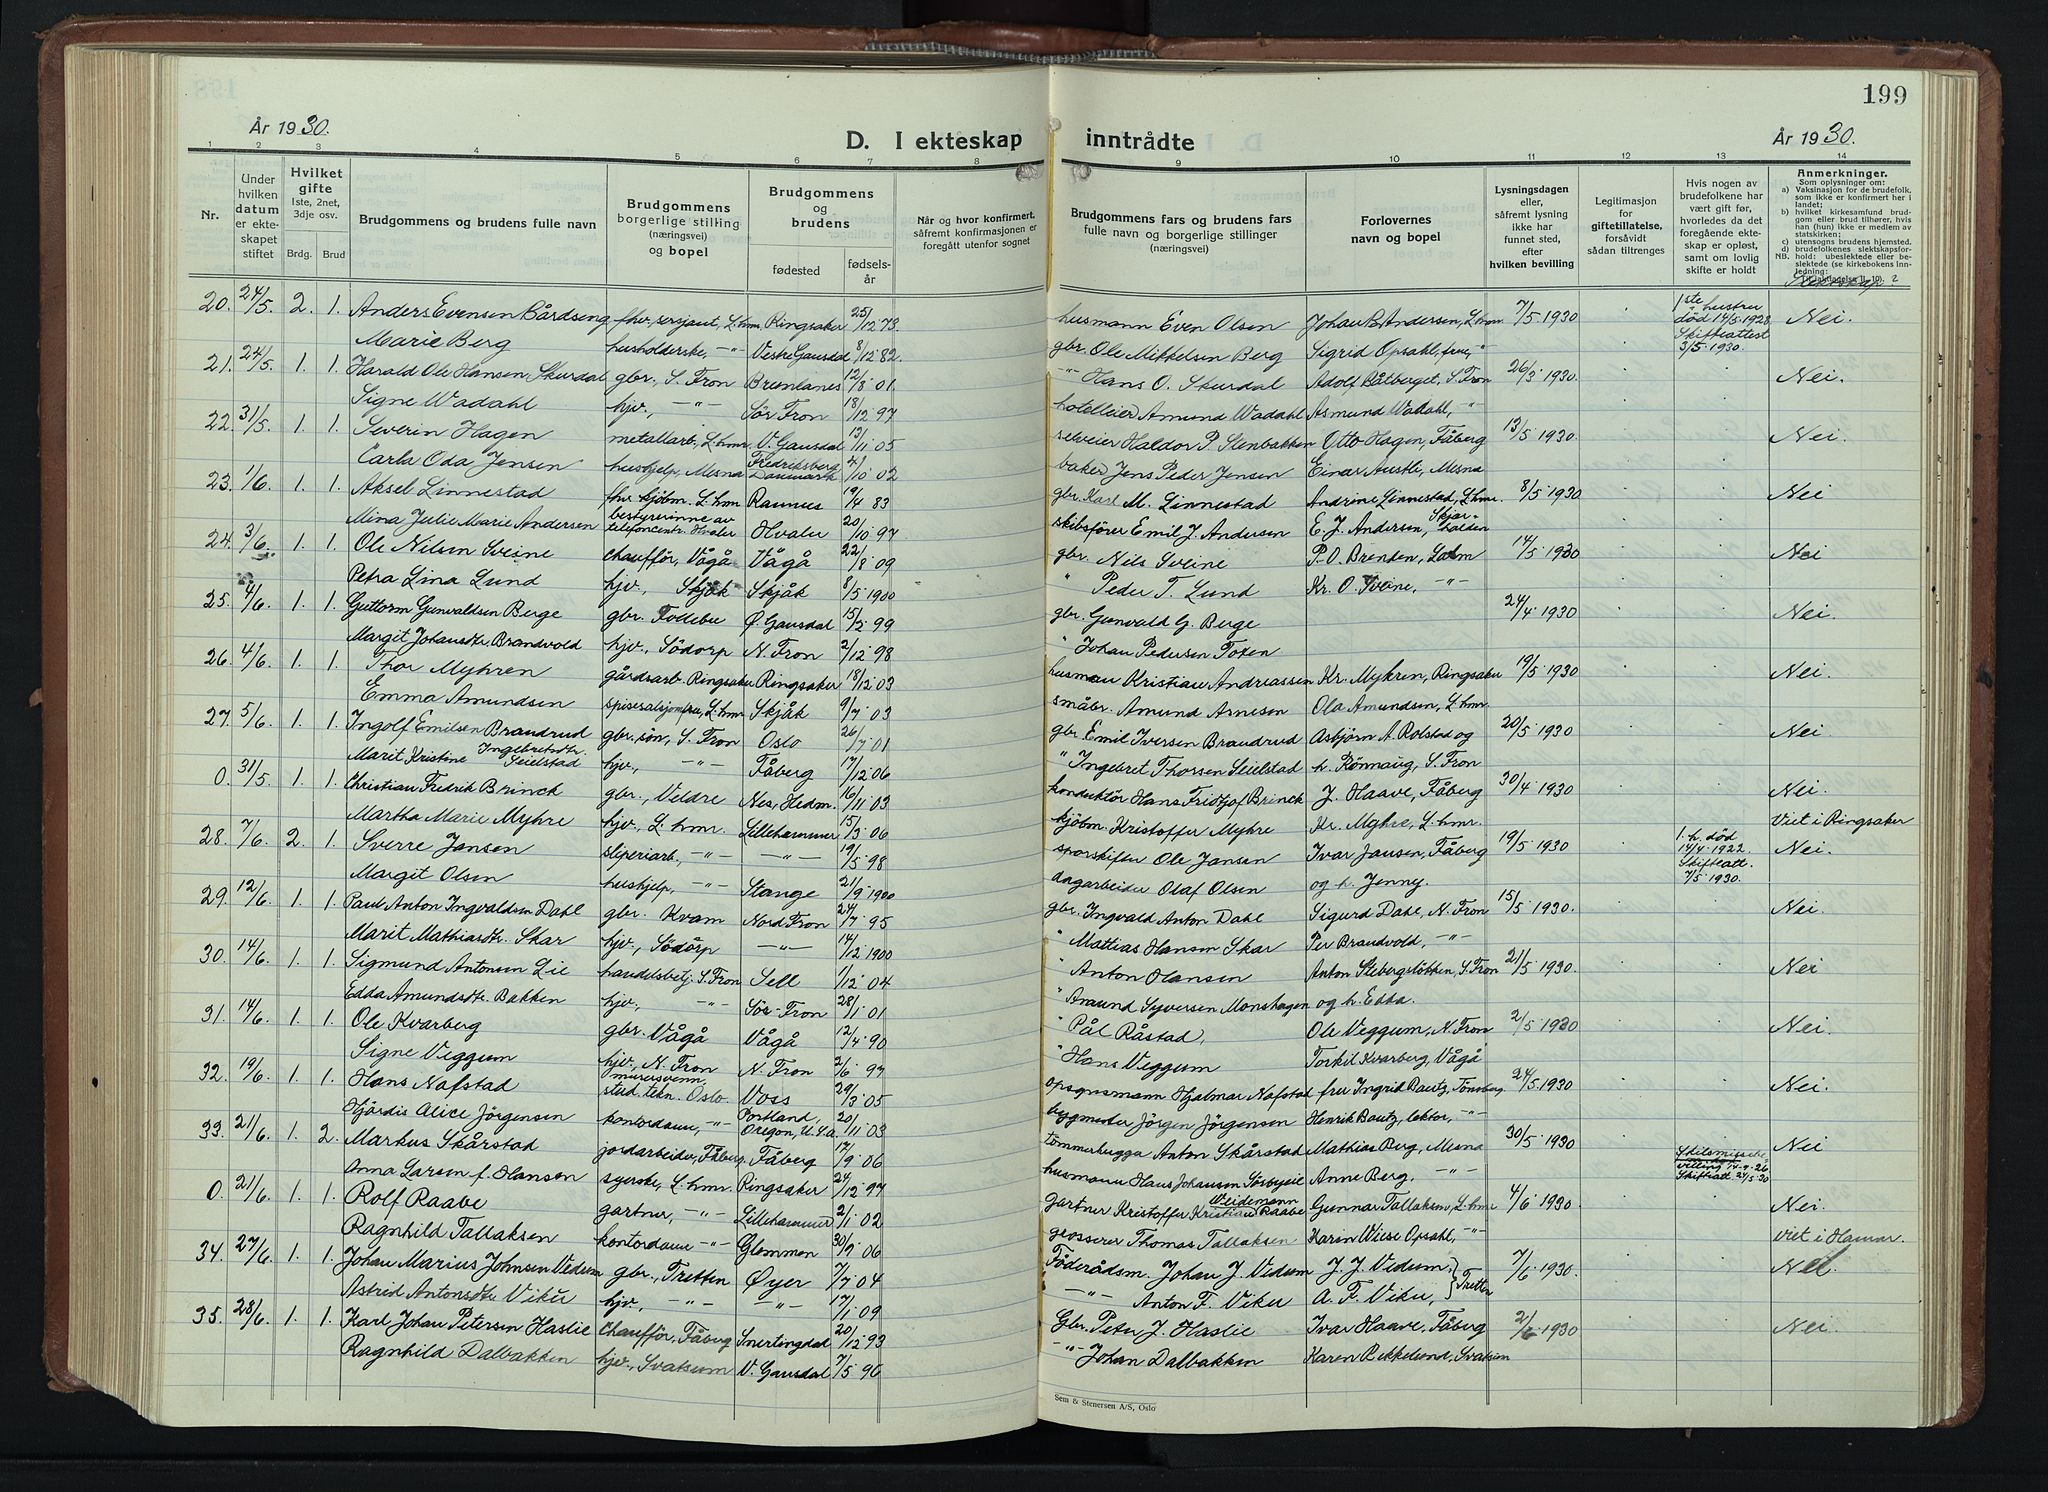 199
År 1930.
D. I ekteskap inntrådte
År 1930.
1 2 3 4 5 6 7 8 9 10 11 12 13 14
Nr.
Under hvilken datum er ekteskapet stiftet
Hvilket gifte 1ste, 2net, 3dje osv.
Brdg. Brud
Brudgommens og brudens fulle navn
Brudgommens borgerlige stilling (næringsvei) og bopel
Brudgommens og brudens
fødested
fødselsår
Når og hvor konfirmert, såfremt konfirmasjonen er foregått utenfor sognet
Brudgommens fars og brudens fars fulle navn og borgerlige stillinger (næringsvei)
Forlovernes navn og bopel
Lysningsdagen eller, såfremt lysning ikke har funnet sted, efter hvilken bevilling
Legitimasjon for giftetillatelse, forsåvidt sådan tiltrenges
Hvis nogen av brudefolkene har vært gift før, hvorledes da det foregående ekteskap er opløst, samt om lovlig skifte er holdt
Anmerkninger.
Som oplysninger om:
a) Vaksinasjon for de brudefolk, som ikke er konfirmert her i landet;
b) hvilket kirkesamfund brudgom eller brud tilhører, hvis han (hun) ikke er medlem av statskirken;
c) utensogns brudens hjemsted.
d) brudefolkenes slektskapsforhold: ubeslektede eller beslektede (se kirkebokens innledning:
NB.
20. 24/5 2. 1. Anders Evensen Bårdseng fhv. sersjant, L.hmr. Ringsaker 25/12 73 husmann Even Olsen Johan B. Andersen, L.hmr 7/5 1930 1ste hustru død 14/5 1928 Skifteattest 3/5 1930. Nei.
Marie Berg husholderske, -"- Vestre Gausdal 8/12 82. gbr. Ole Mikkelsen Berg Sigrid Opsahl, frue, -"-
21. 24/5. 1. 1. Harald Ole Hansen Skurdal gbr., S. Fron 12/8 01. -"- Hans O. Skurdal Adolf Bålberget, S. Fron 26/3 1930. Nei.
Signe Wadahl hjv., -"- Sör Fron 18/12 97 hotelleier Amund Wadahl Asmund Wadahl, -"-
22. 31/5. 1. 1. Severin Hagen metallarb., L.hmr. V. Gausdal 13/11 05 selveier Haldor P. Stenbakken Otto Hagen, Fåberg 13/5 1930. Nei.
Carla Oda Jensen hushjelp, Mesna Fredriksberg Danmark 4/10 02 baker Jens Peder Jensen Einar Austli, Mesna
23. 1/6. 1. 1. Aksel Linnestad fhv. kjöbm. L.hmr Ramnes 19/4 83 gbr. Karl M. Linnestad Andrine Linnestad, L.hmr. 8/5 1930 Nei
Mina Julie Marie Andersen bestyrerinne av telefoncentr. Hvaler Hvaler 20/10 97 skibsförer Emil J. Andersen E. J. Andersen, Skjærhalden
24. 3/6. 1. 1. Ole Nilsen Sveine Chaufför, Vågå Vågå 22/8 09 gbr. Nils Sveine P. O. Brenden, Lalm 14/5 1930 Nei
Petra Lina Lund hjv., Skjåk Skjåk 8/5 1900 " Peder T. Lund Kr. O. Sveine, -"-
25. 4/6. 1. 1. Guttorm Gunvaldsen Berge gbr. Follebu Ö. Gausdal 15/2 99 gbr. Gunvald G. Berge 24/4 1930 Nei.
Margit Johansdtr. Brandvold hjv., Södorp N. Fron 2/12 98 " Johan Pedersen Toxen
26. 4/6. 1. 1. Thor Myhren gårdsarb. Ringsaker Ringsaker 18/12 03 husman Kristian Andreassen Kr. Myhren, Ringsaker 19/5 1930 Nei.
Emma Amundsen L.hmr. Skjåk 9/7 03 småbr. Amund Arnesen Ola Amundsen, L.hmr.
27. 5/6. 1. 1. Ingolf Emilsen Brandrud gbr.sön, S. Fron Oslo 26/7 01 gbr. Emil Iversen Brandrud Asbjörn A. Rolstad og 20/5 1930. Nei.
Marit Kristine Ingebretsdtr. Seielstad hjv., -"- Fåberg 17/12 06 " Ingebret Thorsen Seielstad h. Rönnaug, S. Fron
0. 31/5 1. 1. Christian Fredrik Brinck gbr., Veldre Nes, Hedm. 16/11 03 konduktör Hans Fridtjof Brinck J. Haave, Fåberg 30/4 1930 Nei.
Martha Marie Myhre hjv., L.hmr. Lillehammer 15/3 06 kjöbm. Kristoffer Myhre Kr. Myhre, L.hmr. Viet i Ringsaker
28. 7/6. 2. 1. Sverre Jansen sliperiarb., -"- -"- 19/5 98 sporskifter Ole Jansen Ivar Jansen, Fåberg 19/5 1930 1. h. død 14/4 1922 Skifteatt. 7/5 1930. Nei.
Margit Olsen hushjelp, -"- Stange 21/9 1900 dagarbeider Olaf Olsen og h. Jenny.
29. 12/6. 1. 1. Paul Anton Ingvaldsen Dahl gbr. Kvam Nord Fron 24/7 95 gbr. Ingvald Anton Dahl Sigurd Dahl, N. Fron 15/5 1930. Nei.
Marit Mathiasdtr. Skar hjv., Södorp -"- 14/12 1900 " Mattias Hansen Skar Per Brandvold, -"-
30. 14/6. 1. 1. Sigmund Antonsen Lie handelsbetj. S. Fron Sell 1/2 04 " Anton Hansen Anton S. Fron 21/5 1930. Nei
Edda Amundsdtr. Bakken hjv., -"- Sör-Fron 28/1 01 " Amund Syversen Monshagen og h. Edda.
31. 14/6. 1. 1. Ole Kvarberg gbr. Vågå Vågå 12/4 90 " Pål Råstad, Ole Veggum, N. Fron 2/5 1930 Nei.
Signe Veggum hjv., N. Fron N. Fron 2/6 97 " Hans Veggum Torkil Kvarberg, Vågå
32. 19/6. 1. 1. Hans Nafstad murersvenn stud. tekn. Oslo. Voss 29/3 05 opsynsmann Hjalmar Nafstad fru Ingrid Bautz, Tönsberg 24/5 1930 Nei.
Hjördis Alice Jörgensen kontordame, -"- Portland, Oregon, U.S.a. 20/11 03 bygmester Jörgen Jörgensen Henrik Bautz, lektor, -"-
33. 21/6. 1. 2. Markus Skårstad jordarbeider, Fåberg. Fåberg 17/9 06 tömmerhugger Anton Skårstad Mathias Berg, Mesna 30/5 1930 Skilsmisse 14-4-26 Skifteatt. 24/5 30 Nei
Anna Larsen f. Hansen syerske, L.hmr. Ringsaker 24/12 97 husmann Hans Johansen Anne Berg. -"-
0. 21/6. 1. 1. Rolf Raabe gartner, -"- Lillehammer 2/1 02 gartner Kristoffer Kristian Weidemann Raabe Gunnar Tallaksen, L.hmr 4/6 1930. Nei.
Ragnhild Tallaksen kontordame -"- Glemmen 30/9 06 grosserer Thomas Tallaksen Karin Wiese Opsahl, -"- viet i Hamar.
34. 27/6. 1. 1. Johan Marius Johnsen Vedum gbr., Tretten Øyer 7/7 04 Föderådsm. Johan J. Vedum J. J. Vedum. 7/6 1930. Nei
Astrid Antonsdtr Viku hjv., -"- -"- 17/1 09 -"- Anton F. Viku A. F. Viku, Tretten
35. 28/6. 1. 1. Karl Johan Petersen Haslie Chaufför, Fåberg Snertingdal 20/12 93 Gbr. Peter J. Haslie Ivar Haave, Fåberg 2/6 1930 Nei.
Ragnhild Dalbakken hjv., Svatsum V. Gausdal 7/5 96 -"- Johan Dalbakken Karen Svatsum
Sem & Stenersen A/S, Oslo